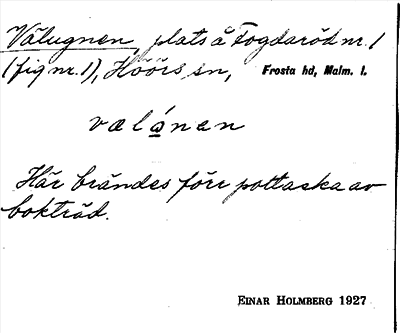 Välugnen, plats å Fogdaröd nr. 1
(fig nr. 1), Höörs sn, Frosta hd, Malm. l.
vælɷ́nen
Här brändes förr pottaska av
bokträd.
EINAR HOLMBERG 1927